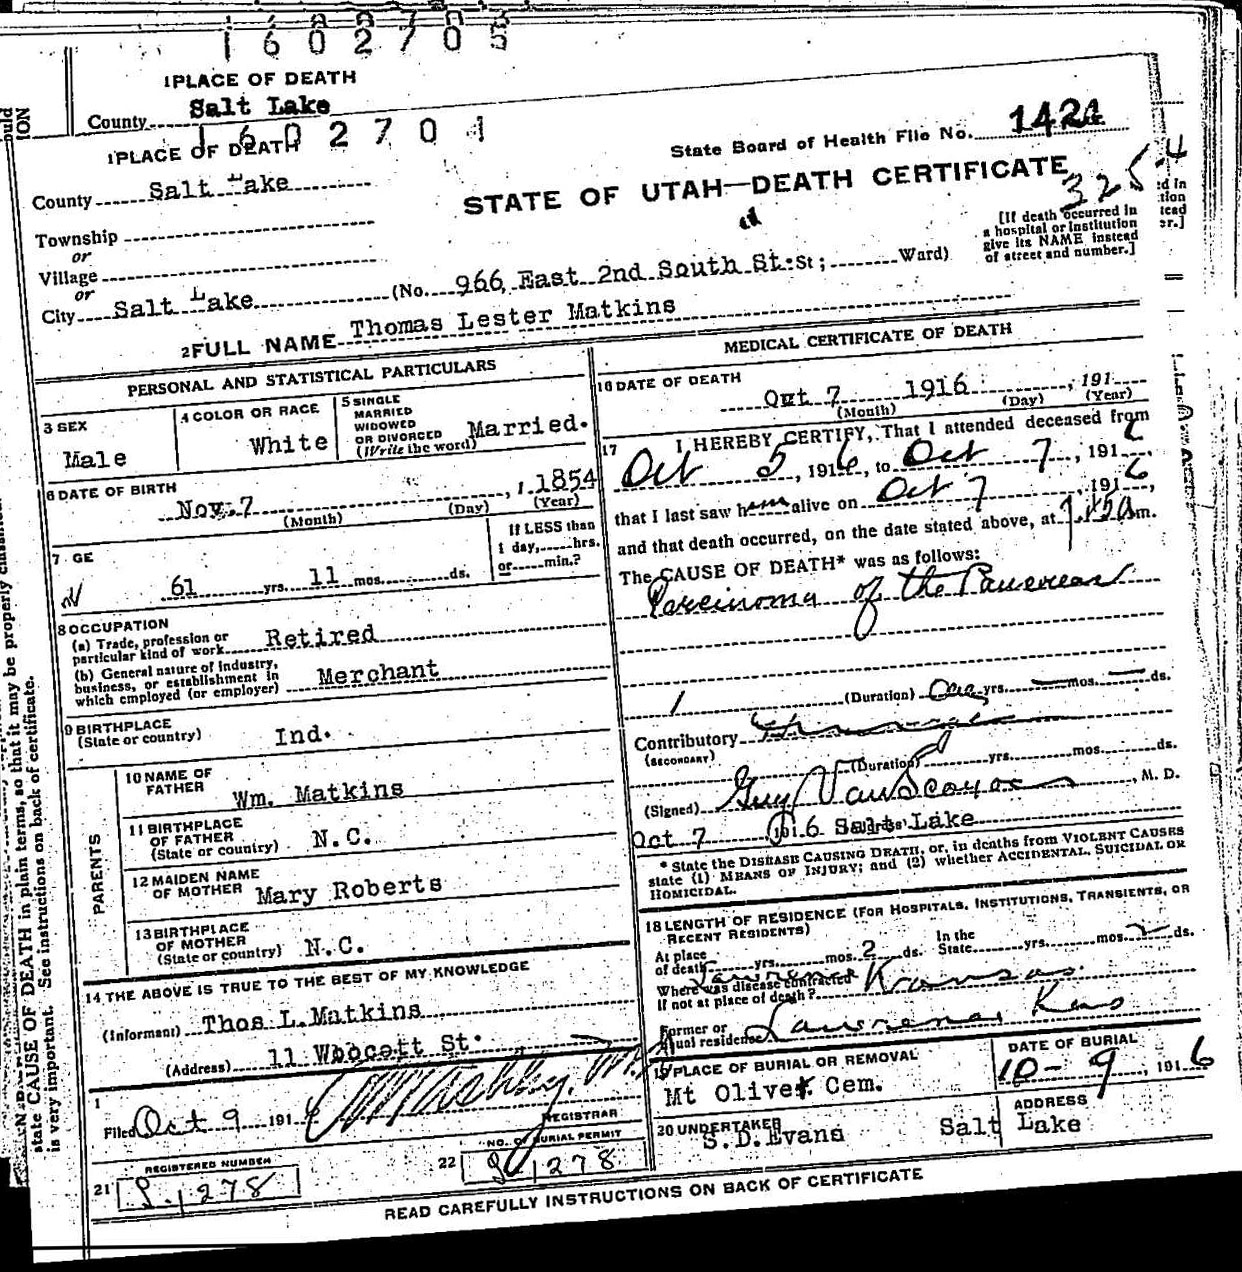 1602705
1 PLACE OF DEATH
County Salt Lake
1602701
1 PLACE OF DEATH
State Board of Health File No. 1421
County Salt Lake
STATE OF UTAH—DEATH CERTIFICATE
325
Township
or
Village
or
[If death occurred in
a hospital or institution
give its NAME instead
of street and number.]
City Salt Lake (No. 966 East 2nd South St. St; Ward)
2 FULL NAME Thomas Lester Matkins
PERSONAL AND STATISTICAL PARTICULARS
3 SEX
Male
4 COLOR OR RACE
White
5 SINGLE
MARRIED
WIDOWED
OR DIVORCED
(Write the word)
Married.
6 DATE OF BIRTH
Nov. 7, 1854
(Month) (Day) (Year)
7 GE
61 yrs. 11 mos. ds.
If LESS than
1 day, hrs.
or min.?
8 OCCUPATION
(a) Trade, profession or
particular kind of work Retired
(b) General nature of industry,
business, or establishment in
which employed (or employer) Merchant
9 BIRTHPLACE
(State or country) Ind.
PARENTS
10 NAME OF
FATHER Wm. Matkins
11 BIRTHPLACE
OF FATHER
(State or country) N.C.
12 MAIDEN NAME
OF MOTHER Mary Roberts
13 BIRTHPLACE
OF MOTHER
(State or country) N.C.
14 THE ABOVE IS TRUE TO THE BEST OF MY KNOWLEDGE
(Informant) Thos L. Matkins
(Address) 11 St.
Filed Oct 9 191
REGISTRAR
REGISTERED NUMBER
21 1278
NO. OF BURIAL PERMIT
22 1278
MEDICAL CERTIFICATE OF DEATH
16 DATE OF DEATH
Oct 7 1916, 191
(Month) (Day) (Year)
17 I HEREBY CERTIFY, That I attended deceased from
Oct 5, 1916, to Oct 7, 1916
that I last saw him alive on Oct 7, 1916,
and that death occurred, on the date stated above, at m.
The CAUSE OF DEATH* was as follows:
Carcinoma of the Pancreas
1 (Duration) One yrs. — mos. — ds.
Contributory
(SECONDARY)
(Duration) yrs. mos. ds.
(Signed) Guy Van Scoyoc, M. D.
Oct 7 1916 Salt Lake
* State the DISEASE CAUSING DEATH, or, in deaths from VIOLENT CAUSES
state (1) MEANS OF INJURY; and (2) whether ACCIDENTAL, SUICIDAL OR
HOMICIDAL.
18 LENGTH OF RESIDENCE (FOR HOSPITALS, INSTITUTIONS, TRANSIENTS, OR
RECENT RESIDENTS)
At place
of death yrs. mos. 2 ds. In the
State yrs. mos. 2 ds.
Where was disease contracted
if not at place of death? Lawrence Kansas.
Former or
usual residence Lawrence, Kas
19 PLACE OF BURIAL OR REMOVAL
Mt Olivet Cem.
DATE OF BURIAL
10-9, 1916
20 UNDERTAKER
S.D. Evans
ADDRESS
Salt Lake
READ CAREFULLY INSTRUCTIONS ON BACK OF CERTIFICATE
state CAUSE OF DEATH in plain terms, so that it may be properly
is very important. See instructions on back of certificate.